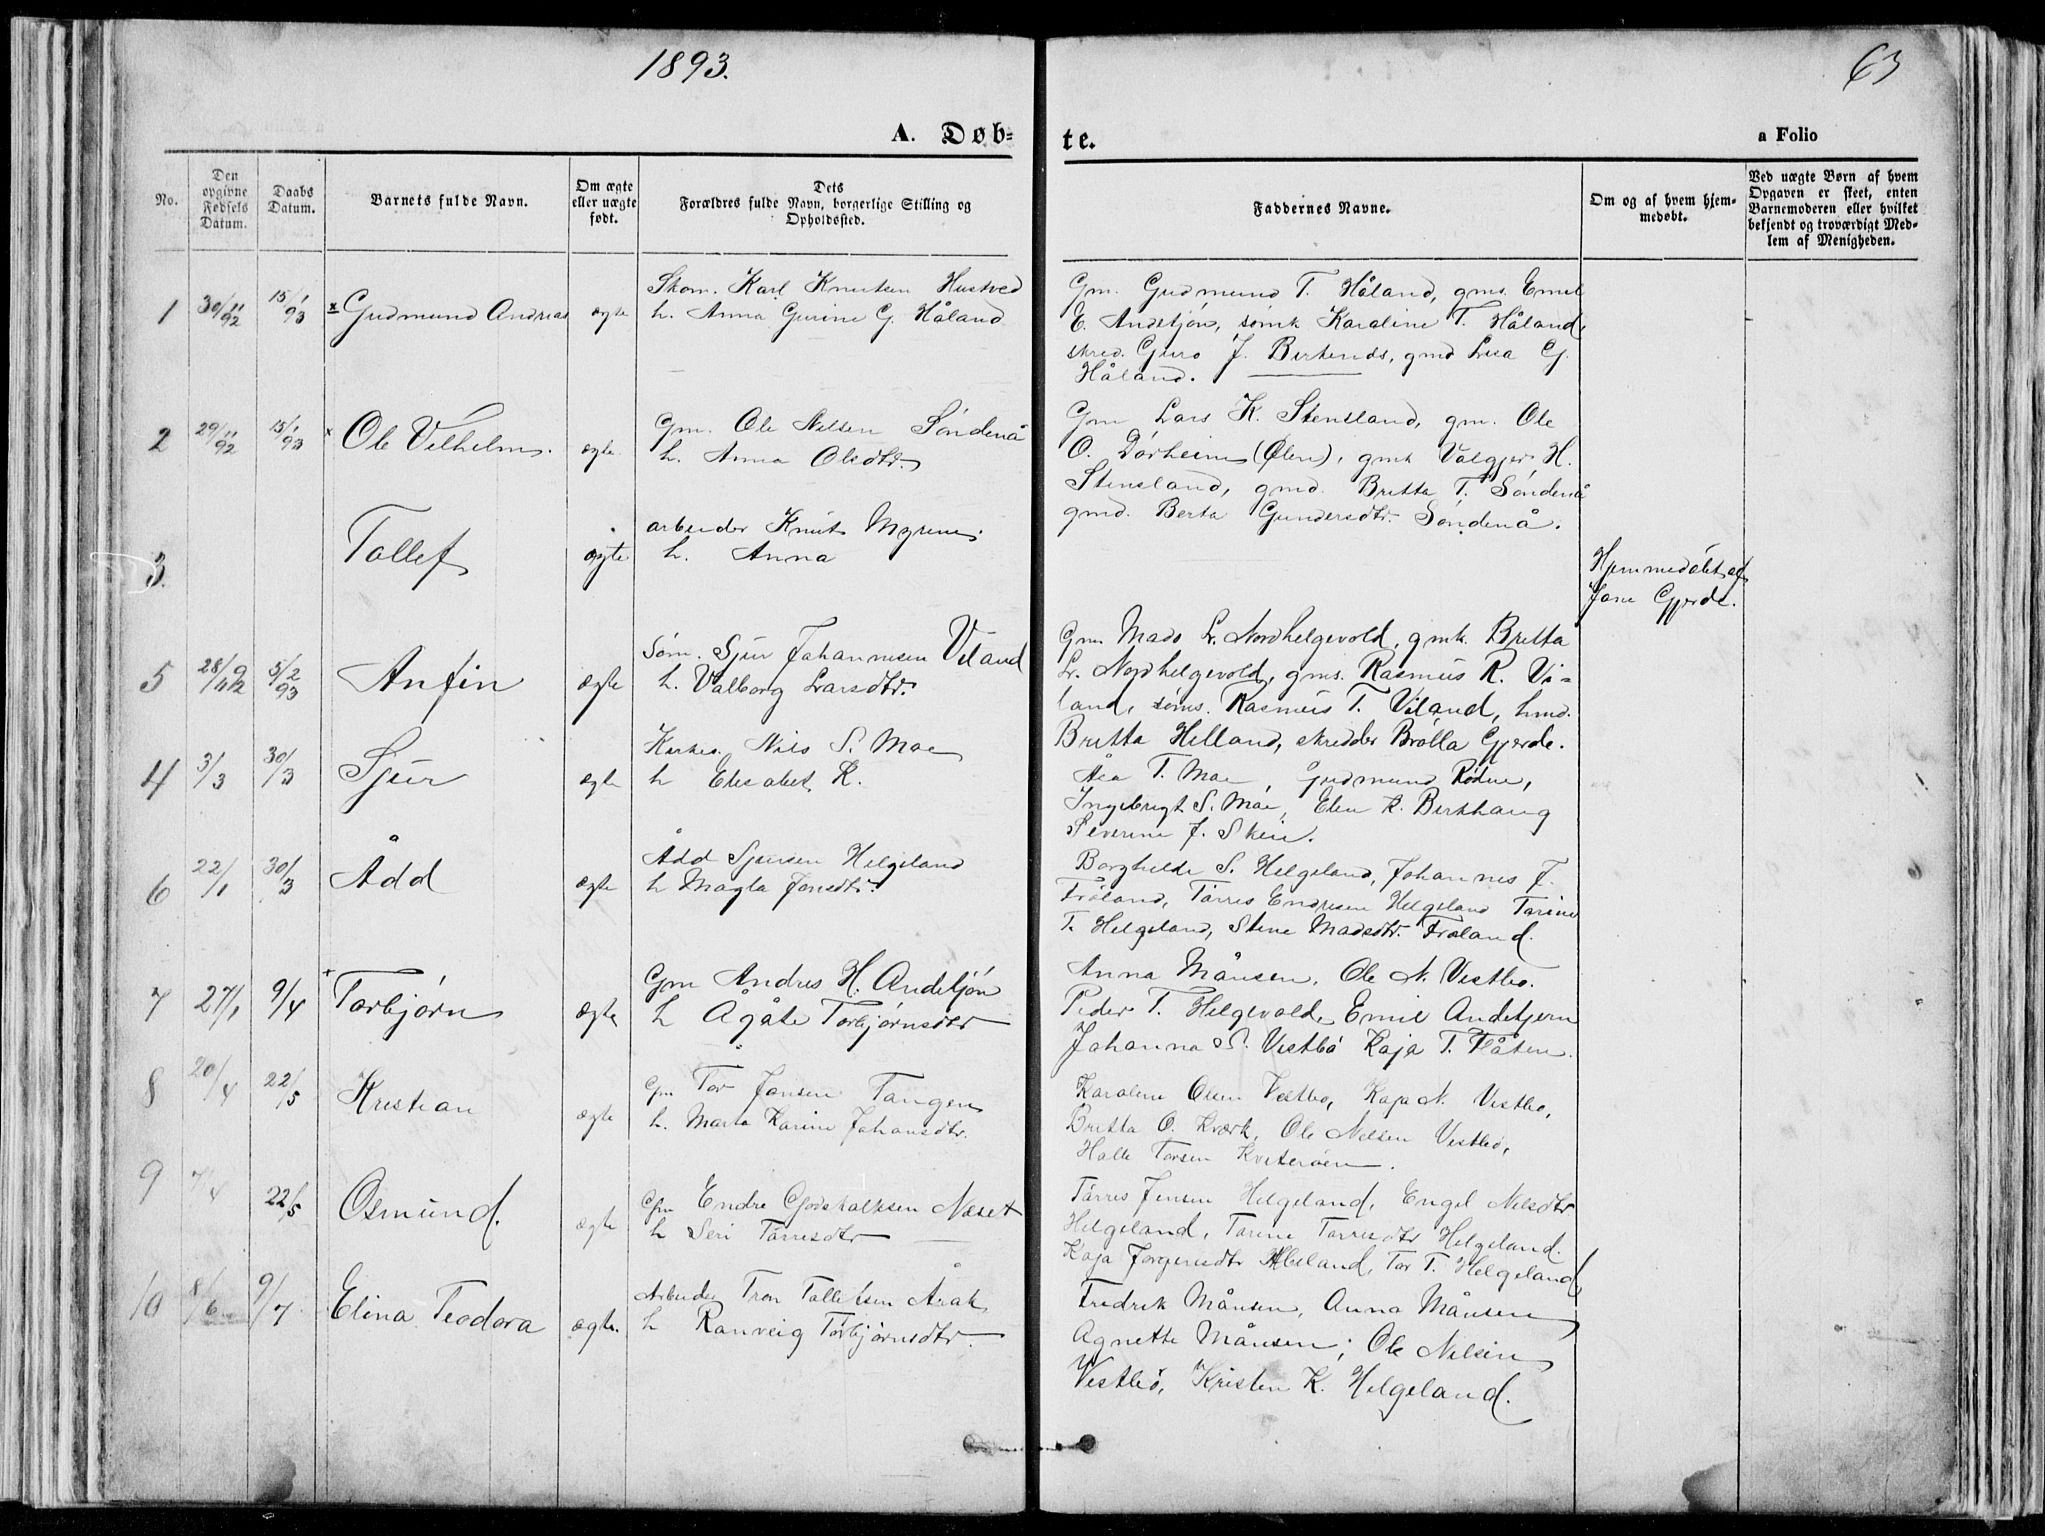 1893.
63
A. Døb-
te.
a Folio
No.
Den opgivne Fødsels Datum.
Daabs Datum.
Barnets fulde Navn.
Om ægte eller uægte født.
Dets Forældres fulde Navn, borgerlige Stilling og Opholdssted.
Faddernes Navne.
Om og af hvem hjemmedøbt.
Ved uægte Børn af hvem Opgaven er skeet, enten Barnemoderen eller hvilket bekjendt og troværdigt Medlem af Menigheden.
1 30/11 92 15/1 93 Gudmund Andreas ægte
Skom. Karl Knutsen Hustved
h. Anna Gurine G. Håland
Gm. Gudmund T. Håland, gms. Emil
E. Andstjøn, sømk Karaline T. Håland,
skred. Guro J. Birkends, gmd Lisa G.
Håland.
2 29/11 92 15/1 93 Ole Vilhelm. ægte
Gm. Ole Nilsen Søndenå
h. Anna Olsdtr.
Gm Lars K. Stensland, gm. Ole
O. Dørheim (Ølen), gmk Valgjer H.
Stensland, gmd. Britta T. Søndenå
gmd. Berta Gundersdtr. Søndenå.
3. Tallef ægte
arbeider Knut Myrene
h. Anna
Hjemmedøbt af
Jone Gjerde.
5 28/12 92 5/2 93 Anfin ægte
Søm. Sjur Johannesen Viland
h. Valborg Larsdtr.
Gm. Mads L. Nordhelgevold, gmk. Britta
L. Nordhelgevold, gms. Rasmus R. Vi-
land, søms. Rasmus T. Viland, hmd.
Britta Helland, skredder Brølla Gjerde.
4 3/3 30/3 Sjur ægte
Nils S. Moe
h Elisabet K.
Åsa T. Moe, Gudmund Rødne,
Ingebrigt S. Moe, Elen K. Birkhaug
Severine J. Skeie.
6 22/1 30/3 Ådd ægte
Ådd Sjursen Helgeland
h Magla Jonsdtr.
Borghilde S. Helgeland, Johannes J.
Frøland, Tørres Endresen Helgeland Tarine
T. Helgeland, Stine Madsdtr. Frøland.
7 27/1 9/4 Torbjørn ægte
Gm Andres H. Andstjøn
h Ågåte Torbjørnsdtr
Anna Månsen, Ole N. Vestbø.
Peder T. Helgevold, Emil Andstjern
Johanna S. Vestbø Kaja T. Flåten.
8 20/4 22/5 Kristian ægte
Gm Tor Jansen Tangen
h. Marta Karine Johansdtr.
Karoline Olsen Vestbø, Kaja N. Vestbø,
Britta O. Kvark, Ole Nilsen Vestbø,
Halle Torsen Kviterøen.
9 7/4 22/5 Osmund. ægte
Gm Endre Godskalksen Næset
h Seri Tørresdtr
Tørres Jensen Helgeland, Engel Nilsdtr
Helgeland, Tarine Torresdtr Helgeland.
Kaja Jorgensdtr Økland, Tor T. Helgeland
10 8/6 9/7 Elina Teodora ægte.
Arbeider Tron Tallefsen Årak
h Ranveig Torbjørnsdtr.
Fredrik Månsen, Anna Månsen
Agnette Månsen; Ole Nilsen
Vestbø, Kristen K. Helgeland.